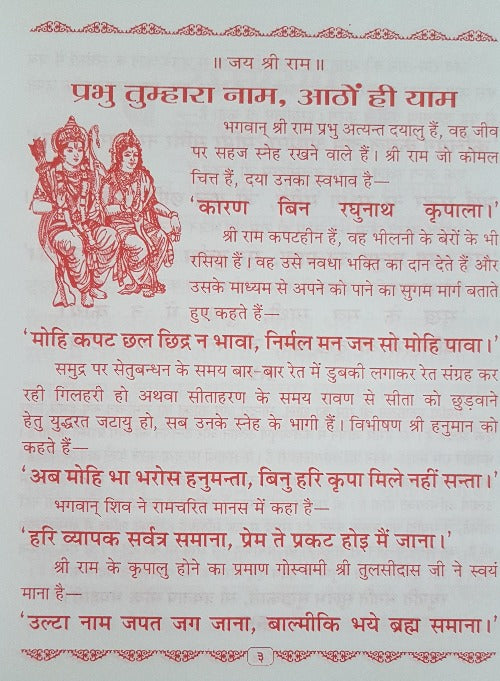 ॥ जय श्री राम॥
प्रभु तुम्हारा नाम, आठों ही याम
भगवान् श्री राम प्रभु अत्यन्त दयालु हैं, वह जीव
पर सहज स्नेह रखने वाले हैं। श्री राम जी कोमल
चित्त हैं, दया उनका स्वभाव है—
‘कारण बिन रघुनाथ कृपाला।’
श्री राम कपटहीन हैं, वह भीलनी के बेरों के भी
रसिया हैं। वह उसे नवधा भक्ति का दान देते हैं और
उसके माध्यम से अपने को पाने का सुगम मार्ग बताते
हुए कहते हैं—
‘मोहि कपट छल छिद्र न भावा, निर्मल मन जन सो मोहि पावा।’
समुद्र पर सेतुबन्धन के समय बार-बार रेत में डुबकी लगाकर रेत संग्रह कर
रही गिलहरी हो अथवा सीताहरण के समय रावण से सीता को छुड़वाने
हेतु युद्धरत जटायु हो, सब उनके स्नेह के भागी हैं। विभीषण श्री हनुमान को
कहते हैं—
‘अब मोहि भा भरोस हनुमन्ता, बिनु हरि कृपा मिले नहीं सन्ता।’
भगवान् शिव ने रामचरित मानस में कहा है—
‘हरि व्यापक सर्वत्र समाना, प्रेम ते प्रकट होइ मैं जाना।’
श्री राम के कृपालु होने का प्रमाण गोस्वामी श्री तुलसीदास जी ने स्वयं
माना है—
‘उल्टा नाम जपत जग जाना, बाल्मीकि भये ब्रह्म समाना।’
३